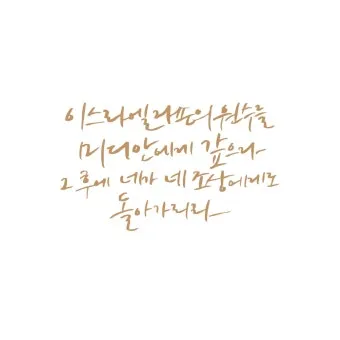 이스라엘 자손의 원수를
미디안에게 갚으라
그 후에 네가 네 조상에게로
돌아가리라